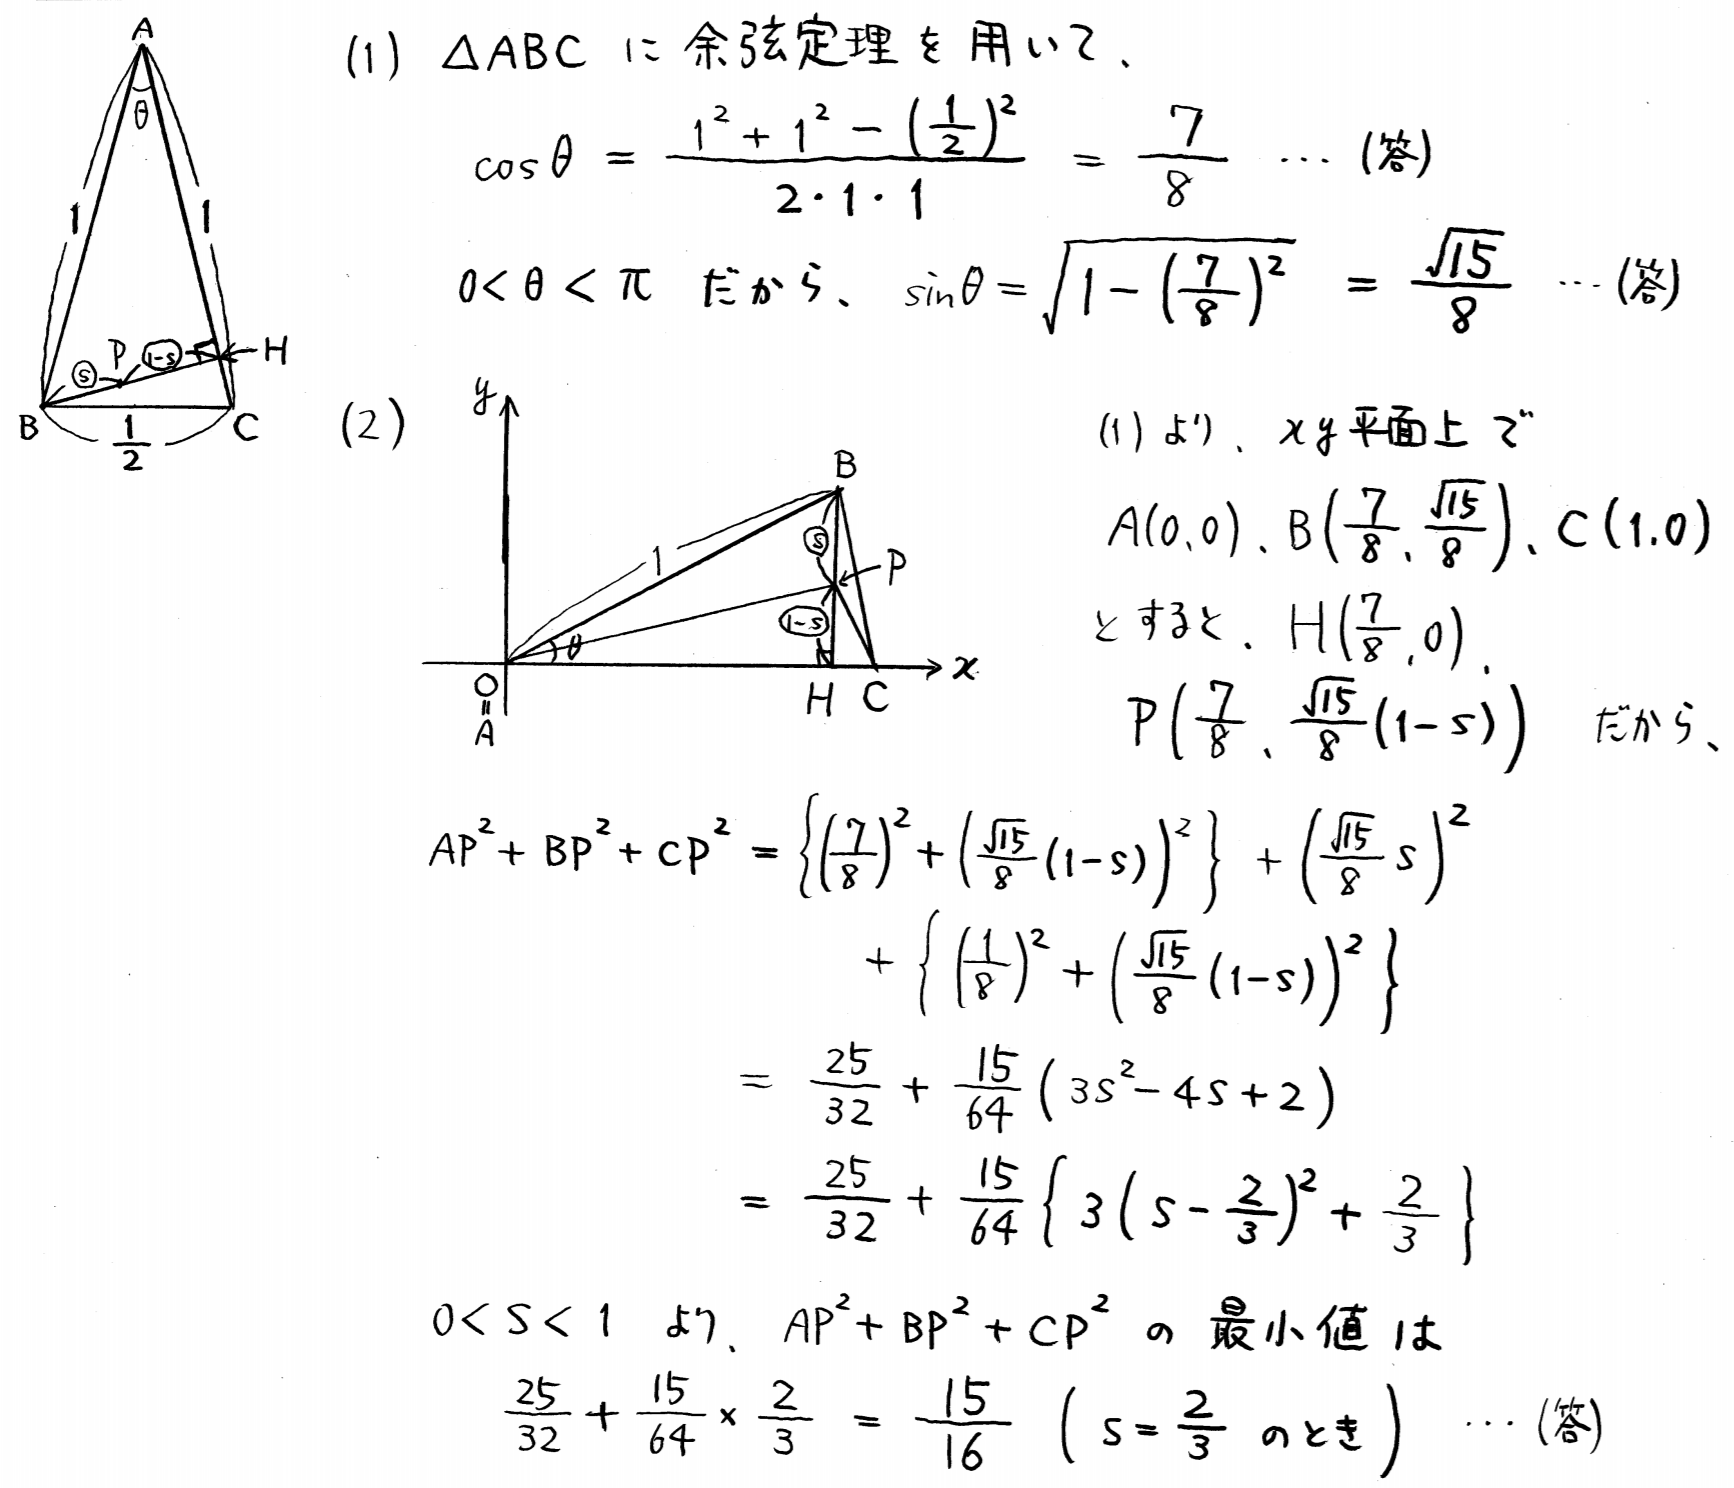 A
θ
1 1
P
ⓢ (1-s) H
B 1/2 C
(1) △ABC に 余弦定理を用いて、
cosθ = (1² + 1² − (1/2)²)/(2・1・1) = 7/8 … (答)
0 < θ < π だから、 sinθ = √(1 − (7/8)²) = √15/8 … (答)
(2)
y
B
ⓢ
1
P
(1-s)
θ
x
O H C
=
A
(1)より、xy平面上で
A(0,0)、B(7/8、√15/8)、C(1.0)
とすると、H(7/8,0)、
P(7/8、√15/8(1−s)) だから、
AP² + BP² + CP² = {(7/8)² + (√15/8(1−s))²} + (√15/8 s)²
+ {(1/8)² + (√15/8(1−s))²}
= 25/32 + 15/64(3s² − 4s + 2)
= 25/32 + 15/64{3(s − 2/3)² + 2/3}
0 < s < 1 より、AP² + BP² + CP² の 最小値は
25/32 + 15/64 × 2/3 = 15/16 (s = 2/3 のとき) … (答)